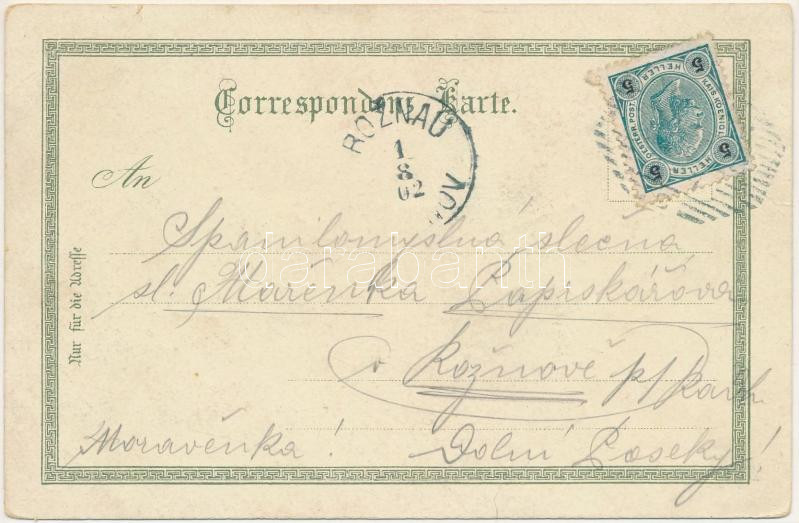 Correspondenz-Karte.
ROŽNAU
1
8
02
NOV
5
5
5
5
HELLER
HELLER
KAIS.KOENIGL.
OESTERR.POST.
An
Nur für die Adresse
Spanilomyslná slečna
sl. Mařenka
v Rožnově p/Radh.
Moravěnka! Dolní Paseky!
darabanth